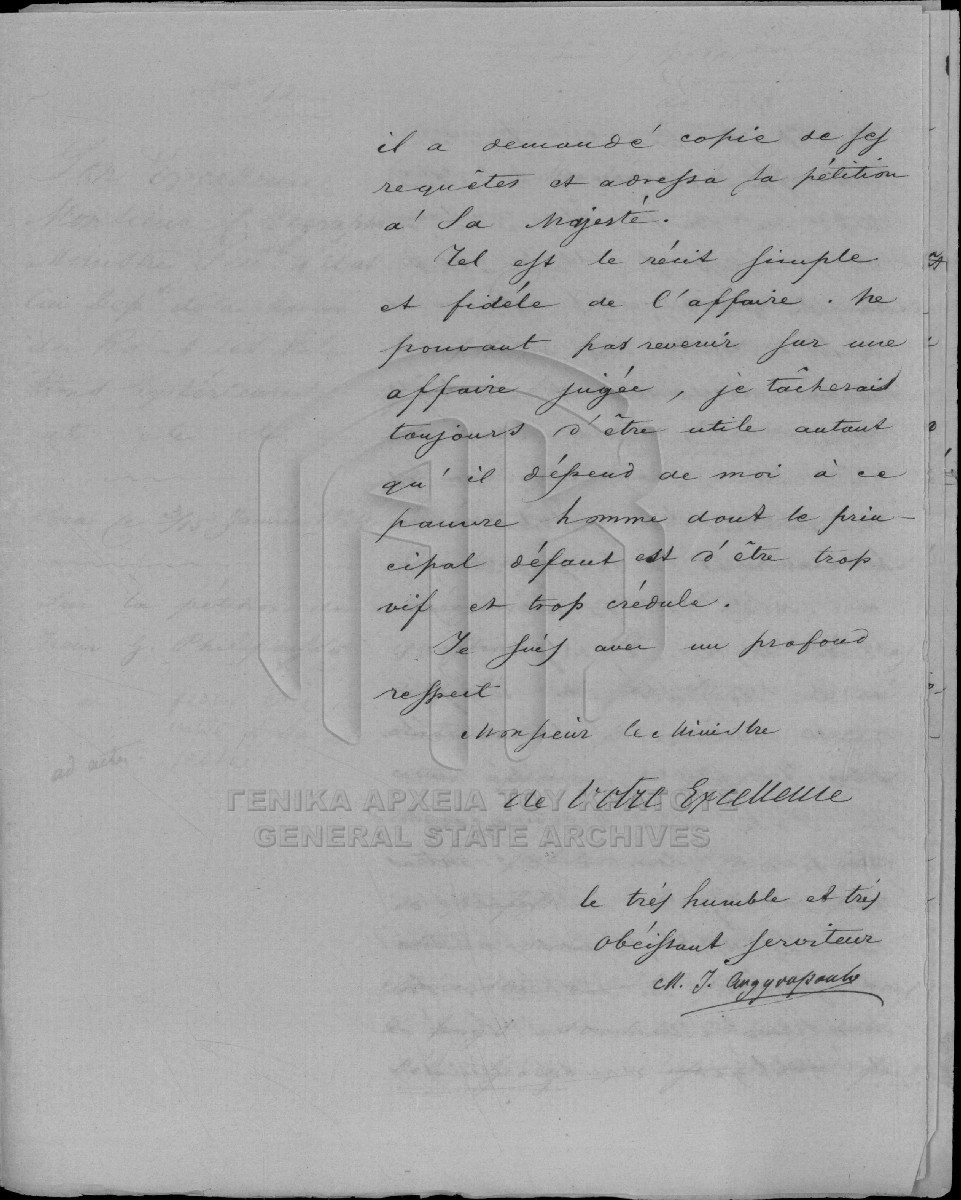 il a demandé copie de ses
requêtes et adressa sa pétition
à Sa Majesté.
Tel est le récit simple
et fidéle de l'affaire. Ne
pouvant pas revenir sur une
affaire jugée, je tâcherais
toujours d'être utile autant
qu'il dépend de moi à ce
pauvre homme dont le prin-
cipal défaut est d'être trop
vif et trop crédule.
Je suis avec un profond
respect
Monsieur le Ministre
ad acta.
de Votre Excellence
ΓΕΝΙΚΑ ΑΡΧΕΙΑ ΤΟΥ ΚΡΑΤΟΥΣ
GENERAL STATE ARCHIVES
le trés humble et trés
obéissant serviteur
M. J. Argyropoulo